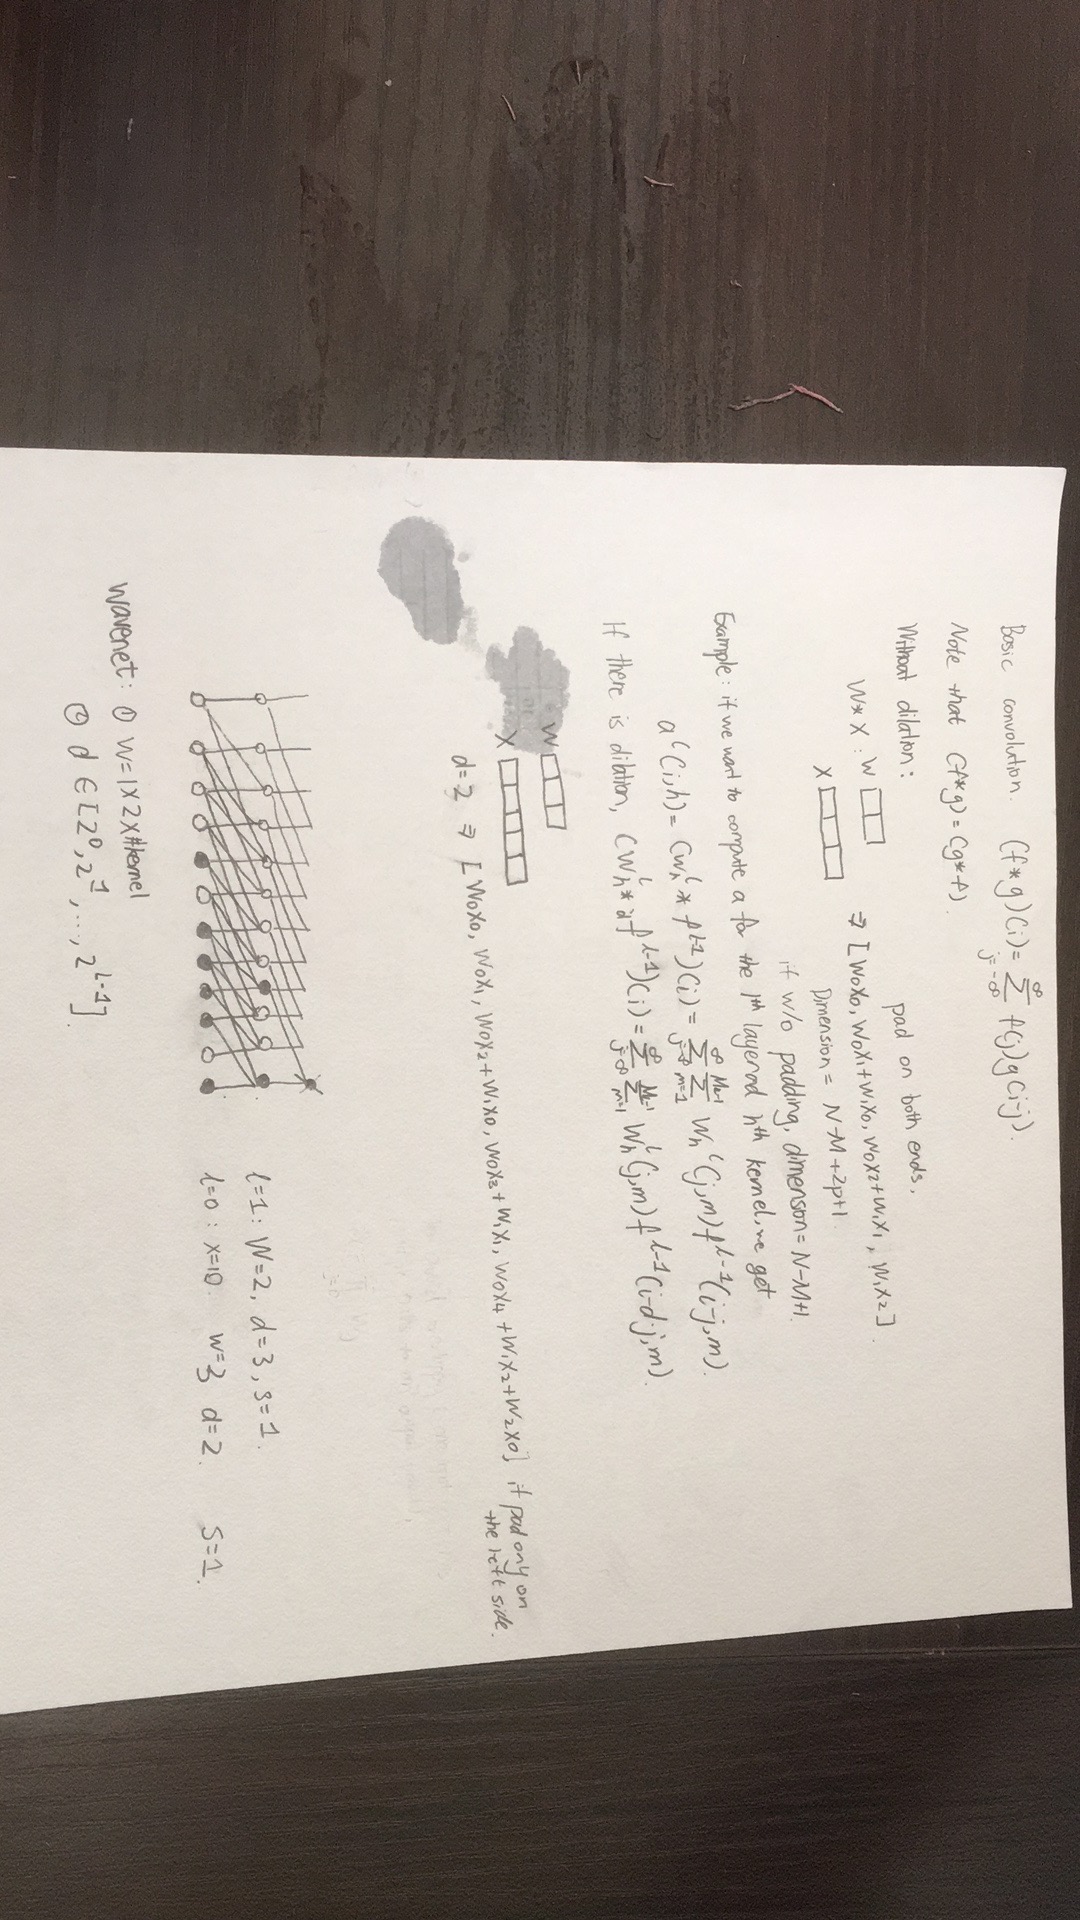 Basic convolution. (f*g)(i)=∑_{j=-∞}^{∞} f(j)g(i-j).
Note that (f*g)=(g*f).
Without dilation: pad on both ends,
W*X : W ⇒ [W0X0, W0X1+W1X0, W0X2+W1X1, W1X2].
X Dimension = N-M+2p+1.
if w/o padding, dimension = N-M+1.
Example: if we want to compute a for the lth layer and hth kernel, we get
a^l(i,h)=(W_h^l * f^{l-1})(i)=∑_{j=-∞}^{∞} ∑_{m=1}^{M_{l-1}} W_h^l(j,m) f^{l-1}(i-j,m).
If there is dilation, (W_h^l *d f^{l-1})(i)=∑_{j=-∞}^{∞} ∑_{m=1}^{M_{l-1}} W_h^l(j,m) f^{l-1}(i-d·j,m).
W
X
d=2 ⇒ [W0X0, W0X1, W0X2+W1X0, W0X3+W1X1, W0X4+W1X2+W2X0] if pad only on
the left side.
l=1: W=2, d=3, s=1.
l=0: x=10. w=3 d=2. S=1.
wavenet: ① W=1X2X#kernel
② d∈[2^0, 2^1, ..., 2^{L-1}].